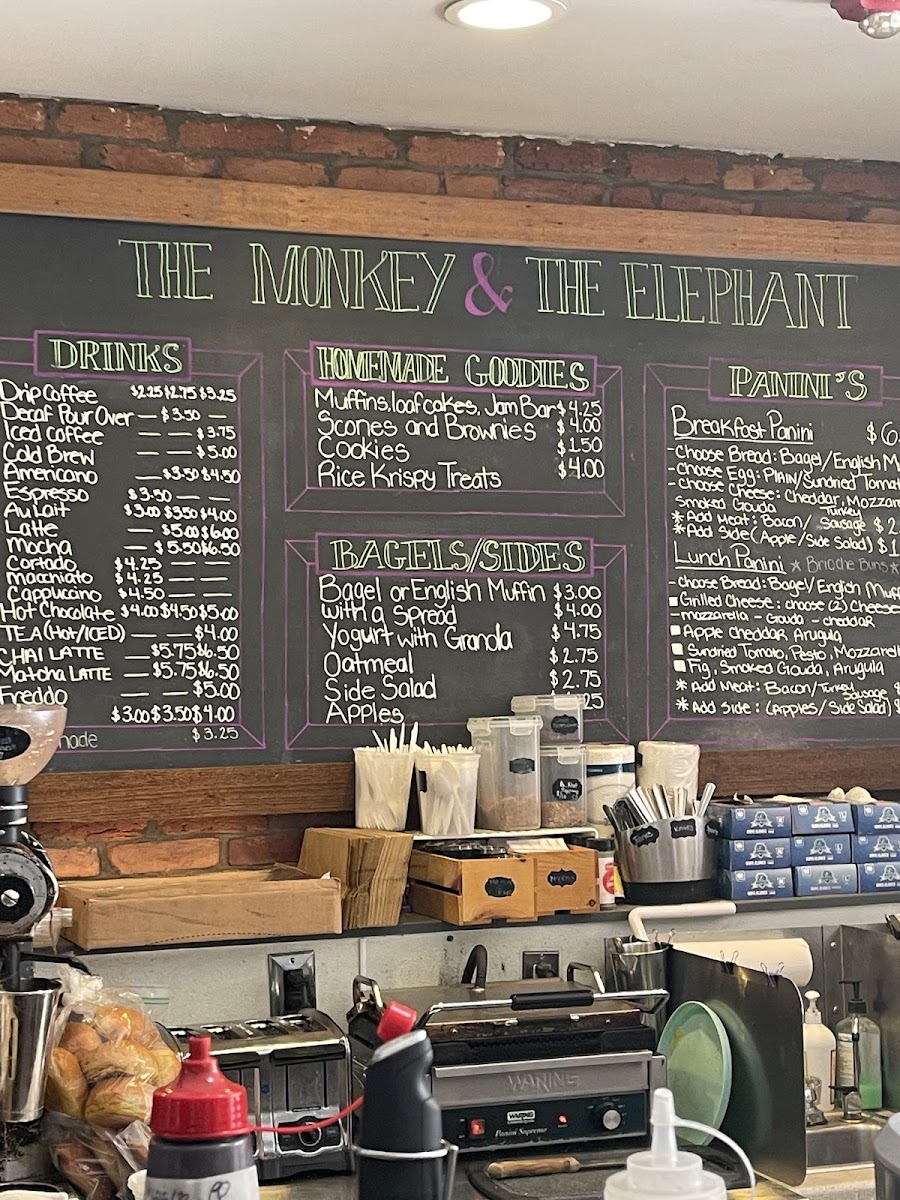 THE MONKEY & THE ELEPHANT
DRINKS
Drip Coffee $2.25 $2.75 $3.25
Decaf Pour Over — $3.50 —
Iced Coffee — — $3.75
Cold Brew — — $5.00
Americano — $3.50 $4.50
Espresso $3.50 — —
Au Lait $3.00 $3.50 $4.00
Latte — $5.00 $6.00
Mocha — $5.50 $6.50
Cortado $4.25 — —
Macchiato $4.25 — —
Cappuccino $4.50 — —
Hot Chocolate $4.00 $4.50 $5.00
TEA (Hot/ICED) — — $4.00
CHAI LATTE — $5.75 $6.50
Matcha LATTE — $5.75 $6.50
Freddo — — $5.00
$3.00 $3.50 $4.00
made $3.25
HOMEMADE GOODIES
Muffins, loaf cakes, Jam Bar $4.25
Scones and Brownies $4.00
Cookies $1.50
Rice Krispy Treats $4.00
BAGELS/SIDES
Bagel or English Muffin $3.00
with a Spread $4.00
Yogurt with Granola $4.75
Oatmeal $2.75
Side Salad $2.75
Apples 25
PANINI'S
Breakfast Panini $6.
- Choose Bread: Bagel/English M
- Choose Egg: Plain/Sundried Tomat
- Choose Cheese: Cheddar, Mozzar
Smoked Gouda
* Add Meat: Bacon/ Turkey Sausage $2
* Add Side (Apple/Side Salad) $1
Lunch Panini * Brioche Buns *
- Choose Bread: Bagel/English Muff
Grilled Cheese: choose (2) Cheese
- Mozzarella - Gouda - cheddar
Apple Cheddar, Arugula
Sundried Tomato, Pesto, Mozzarell
Fig, Smoked Gouda, Arugula
* Add Meat: Bacon/Turkey Sausage $
* Add Side: (Apples/Side Salad) $
WARING
WARING
Panini Supremo